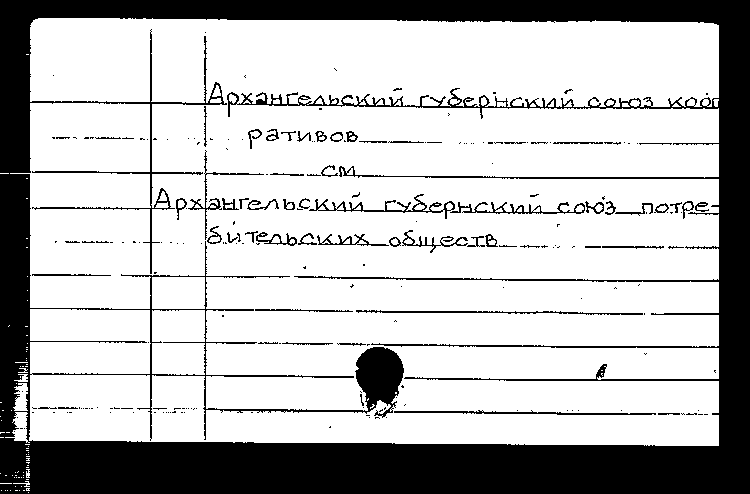 Архангельский губернский союз кооп
ративов
см
Архангельский губернский союз потре-
бительских обществ